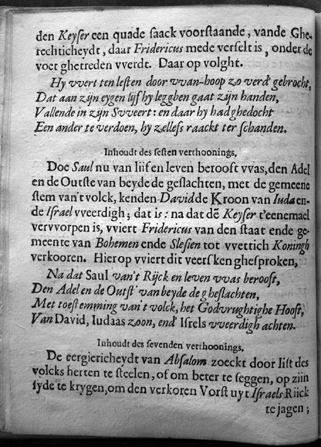 den Keyser een quade saack voorstaande, vande Ghe-
rechticheydt, daar Fridericus mede verselt is, onder de
voet ghetreden vverdt. Daar op volght.
Hy vvert ten lesten door vvan-hoop zo verd' gebrocht,
Dat aan zijn eygen lijf hy leggben gaat zijn handen,
Vallende in zijn Svveert: en daar hy had ghedocht
Een ander te verdoen, hy zellefs raackt ter schanden.
Inhoudt des sesten verthoonings.
Doe Saul nu van lijf en leven berooft vvas, den Adel
en de Outste van beyde de geslachten, met de gemeene
stem van't volck, kenden David de Kroon van Iuda en-
de Israel vveerdigh; dat is: na dat dē Keyser t'eenemael
vervvorpen is, vviert Fridericus van den staat ende ge-
meente van Bohemen ende Slesien tot vvettich Koningh
verkooren. Hier op vviert dit veersken ghesproken,
Na dat Saul van't Rijck en leven vvas berooft,
Den Adel en de Outst' van beyde de gheslachten,
Met toestemming van't volck, het Godvrughtighe Hooft,
Van David, Iudaas zoon, end' Isrels vveerdigh achten.
Inhoudt des sevenden verthoonings.
De eergiericheydt van Absalom zoeckt door list des
volcks herten te steelen; of om beter te seggen, op zijn
syde te krygen, om den verkoren Vorst uyt Israels Rijck
te jagen;